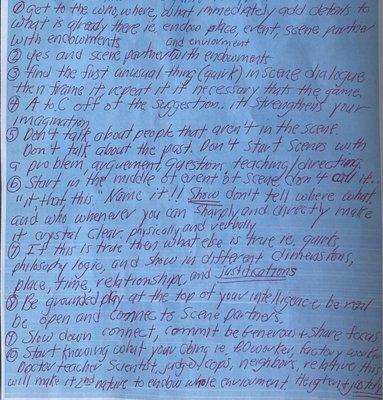 ① get to the who, where, what immediately add details to
what is already there ie. endow place, event, scene partner
with endowments
and enviorment
② yes and scene partner with endowments
③ Find the first unusual thing (quirk) in scene dialogue
then frame it, repeat it if necessary thats the game.
④ A to C off of the suggestion.. it strengthens your
imagination
⑤ Don't talk about people that aren't in the scene
Don't talk about the past. Don't start scenes with
a problem, arguement, questions, teaching/directing.
⑥ Start in the middle of event of scene, don't call it...
"it, that, this." Name it!! Show don't tell where what
and who whenever you can sharply and directly make
it crystal clear. physically and verbally
⑦ If this is true then what else is true ie, quirks,
philosophy logic, and show in different dimenssions,
place, time, relationships, and justifications
⑧ Be grounded play at the top of your intelligence be real
be open and connec to scene partners.
⑨ Slow down connect, commit be Generous + Share focus
⑩ Start knowing what your doing ie. factory worker
Doctor teacher Scientist, judge, cops, neighbors, relative this
will make it 2nd nature to endow whole enviorment Heigten + justify